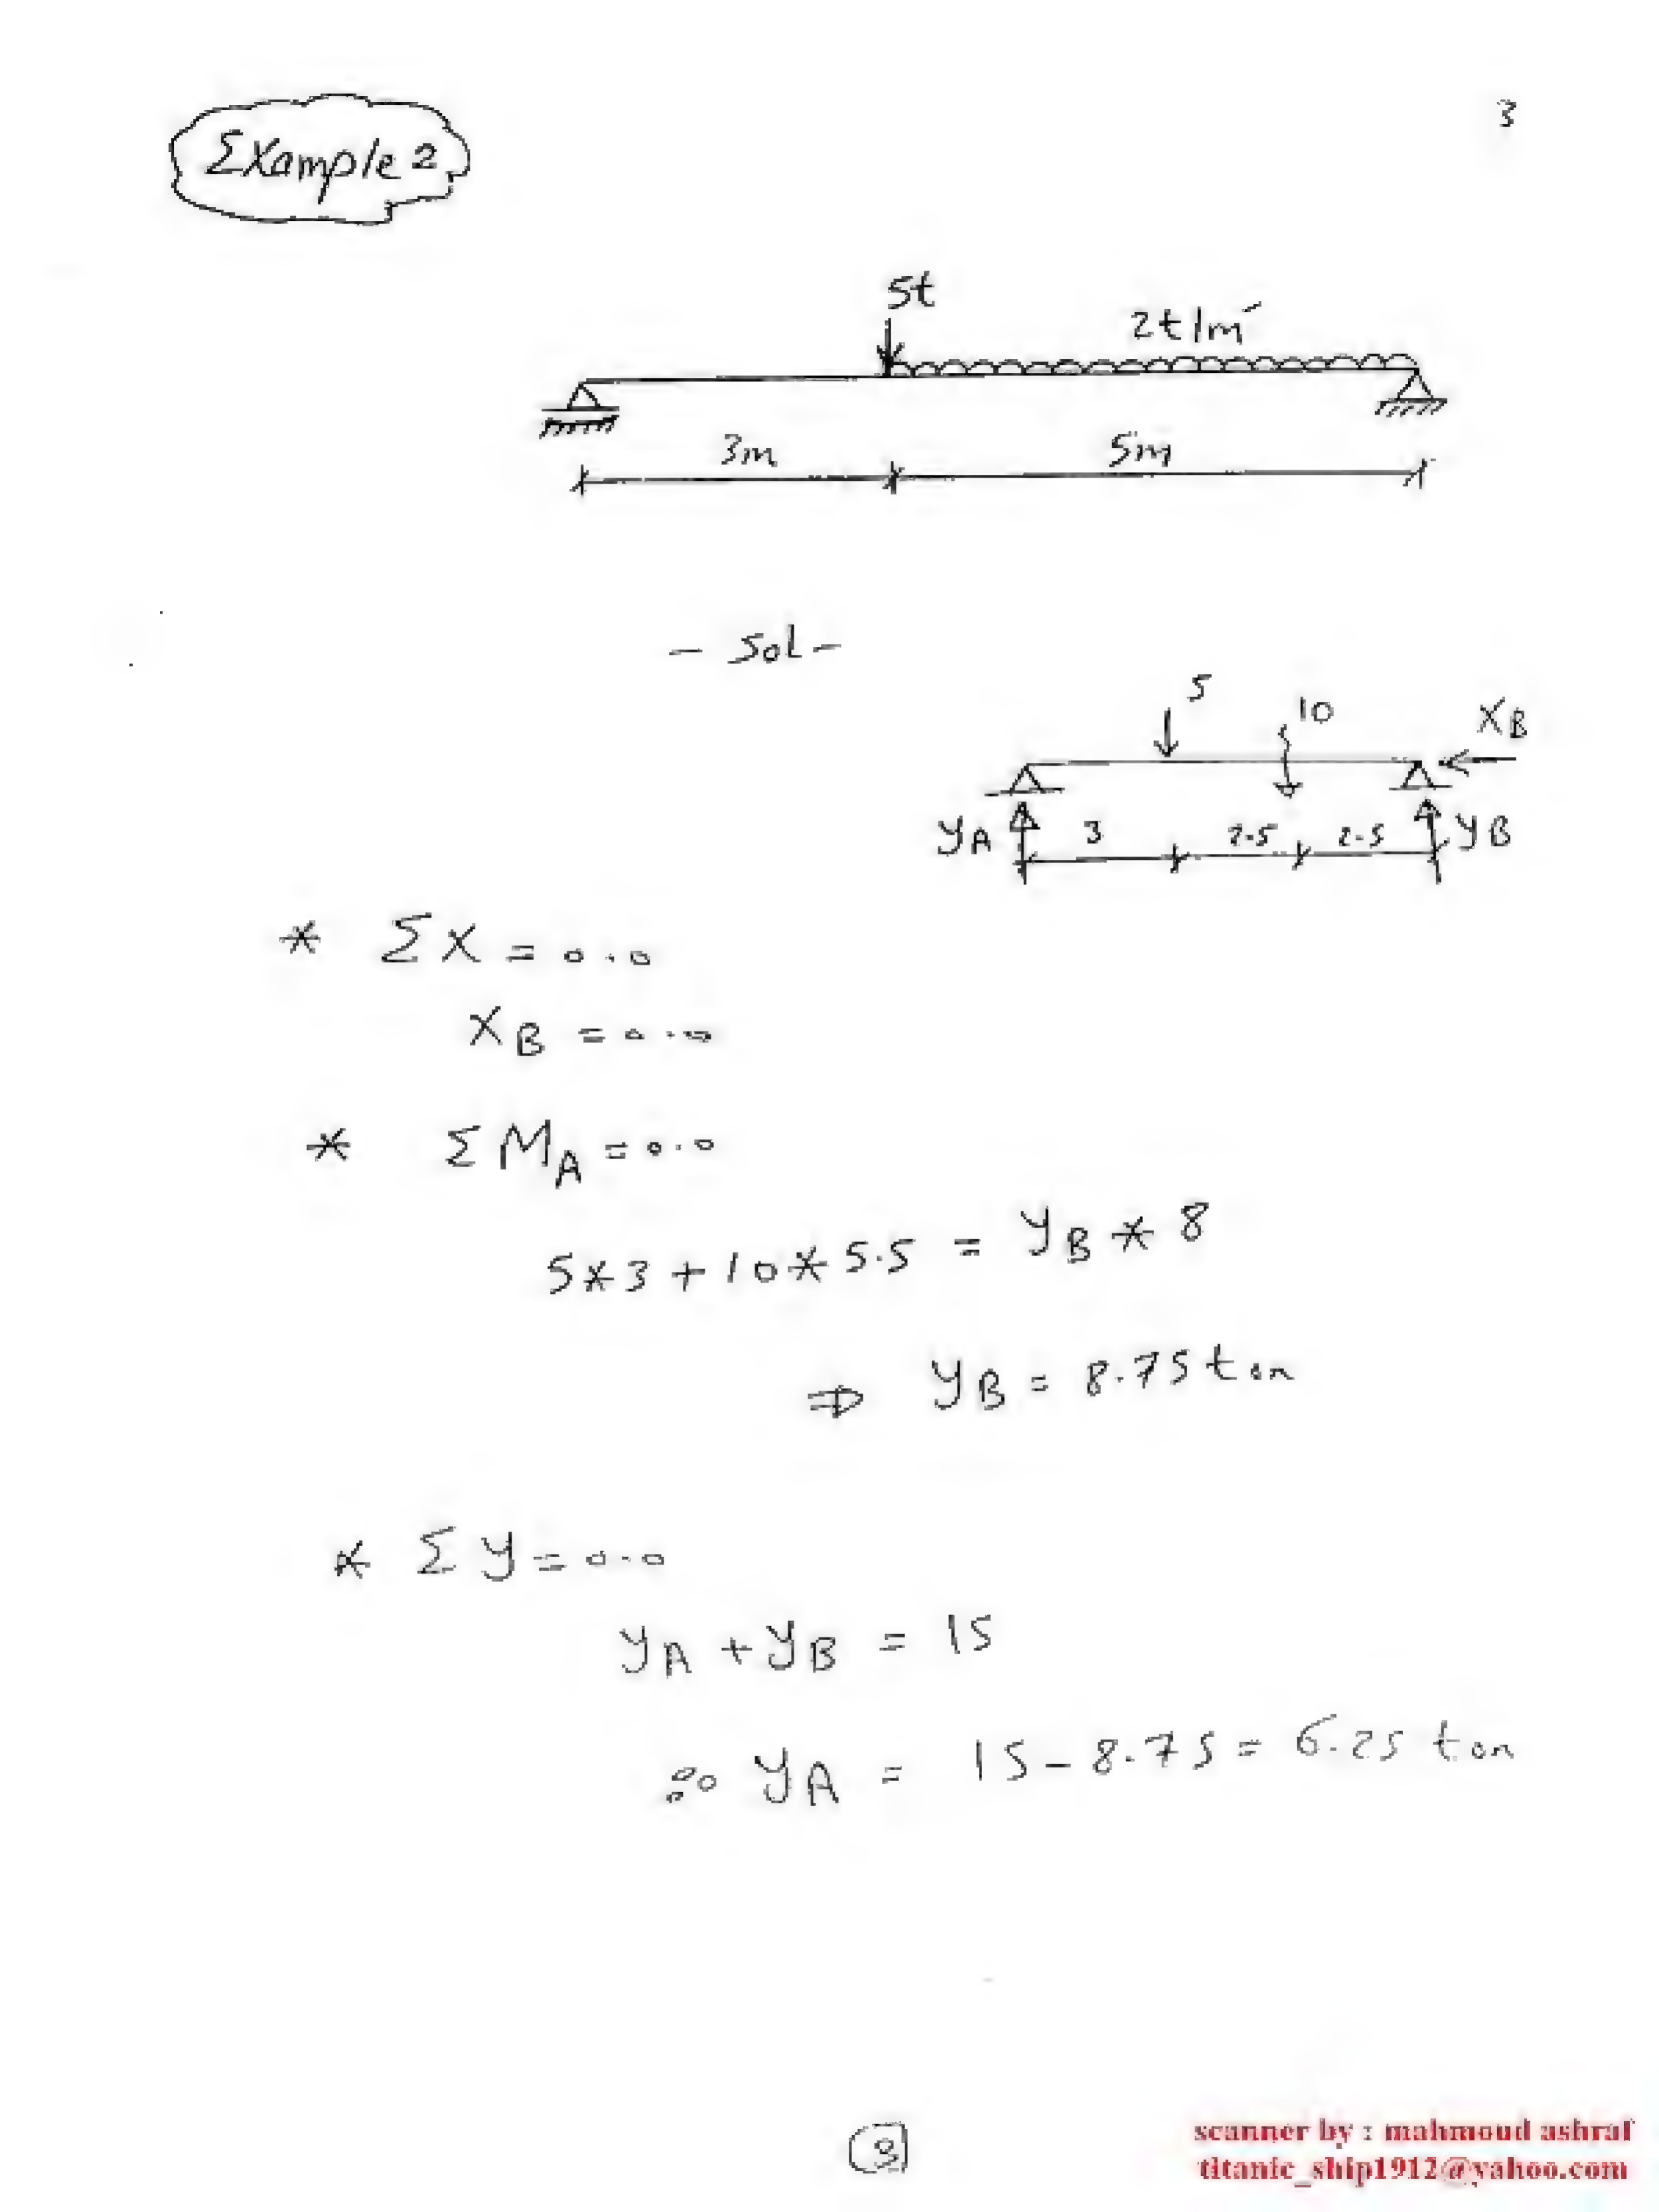 3
Example 2
5t
2t/m'
3m 5m
- Sol -
5 10 XB
yA 3 2.5 2.5 yB
* ΣX = 0.0
XB = 0.0
* ΣMA = 0.0
5*3+10*5.5 = yB * 8
⇒ yB = 8.75 ton
* Σy = 0.0
yA + yB = 15
∴ yA = 15 - 8.75 = 6.25 ton
3
scanner by : mahmoud ashraf
titanic_ship1912@yahoo.com